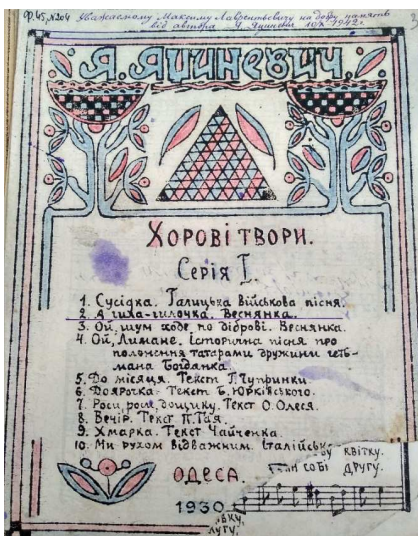 Ф.45,№204 Уважаемому Максиму Лаврентьевичу на добру память
від автора Я. Яциневич 10/X-1942 г.
Я. ЯЦИНЕВИЧ.
ХОРОВІ ТВОРИ.
Серія I
1. Сусідка. Галицька військова пісня.
2. А гила-гилочка. Веснянка.
3. Ой, шум ходе по діброві. Веснянка.
4. Ой, Лимане. Історична пісня про
положення татарами дружини геть-
мана Богданка.
5. До місяця. Текст Г. Чупринки.
6. Доярочка. Текст Б. Юрківського.
7. Роси, роси, дощику. Текст О. Олеся.
8. Вечір. Текст П. Гая.
9. Хмарка. Текст Чайченка.
10. Ми рухом відважним. Італійськ
КВІТКУ.
СОБІ ДРУГУ.
ОДЕСА.
1930